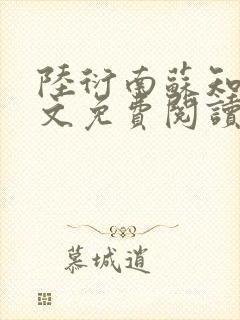 陸衍南蘇知
文免費閱讀
慕城逍